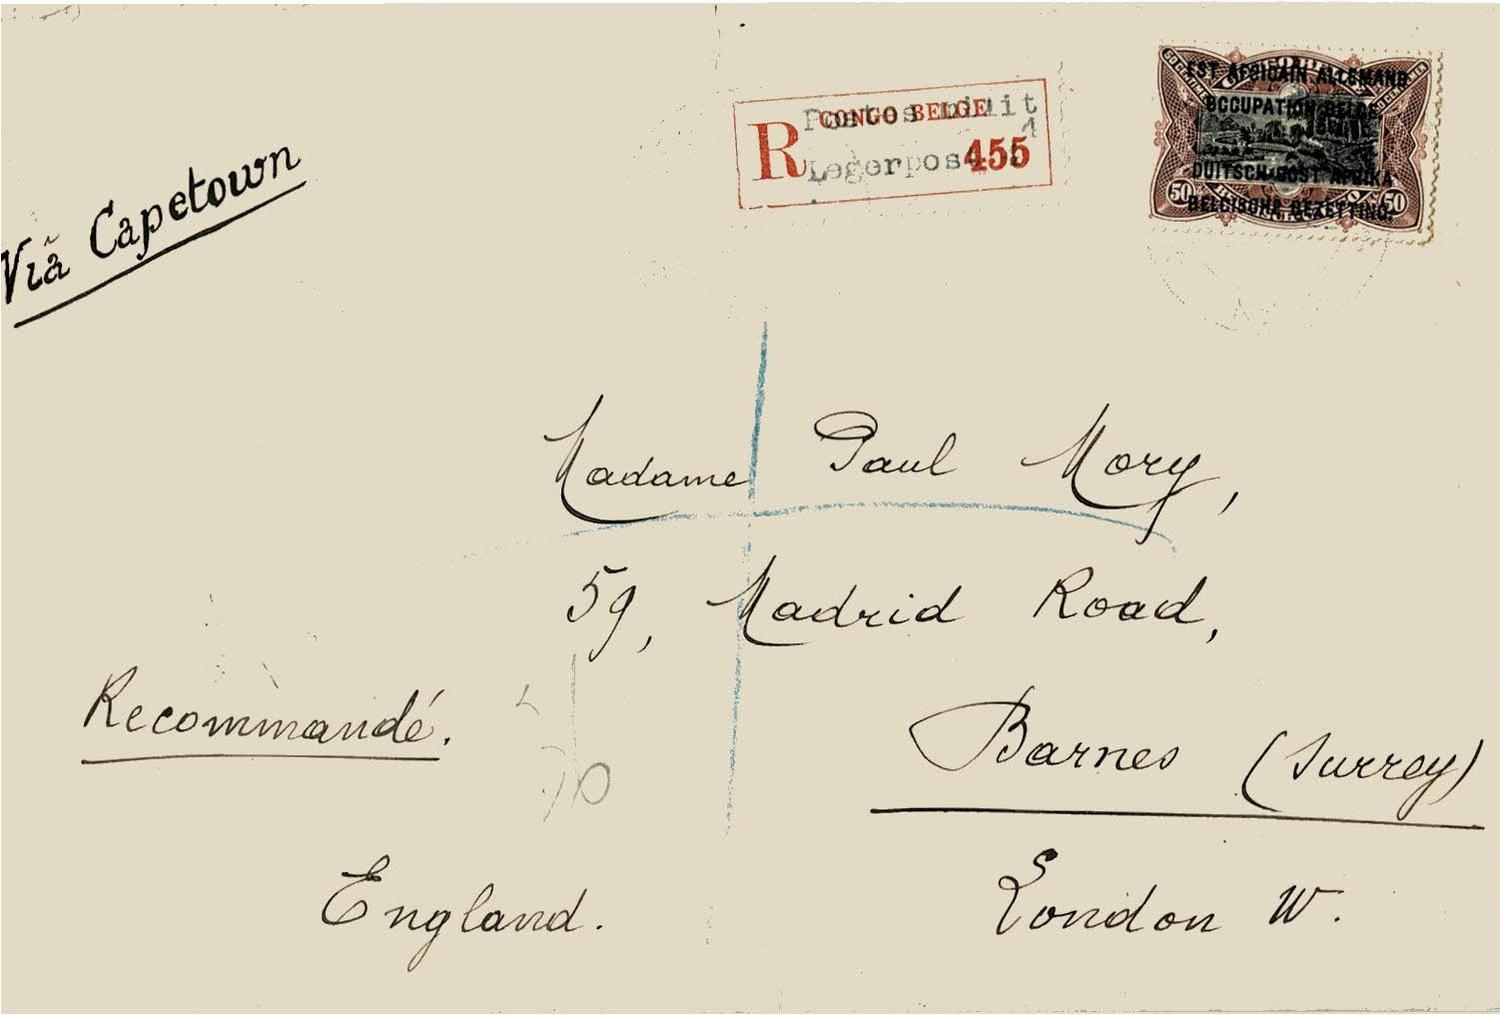 Viã Capetown
R CONGO BELGE 455
Postes milit
Legerpost 1
EST AFRICAIN ALLEMAND
OCCUPATION BELGE
DUITSCH OOST AFRIKA
BELGISCHE BEZETTING.
50 50
Madame Paul Mory,
59, Madrid Road,
Recommandé.
Barnes (Surrey)
England.
London W.